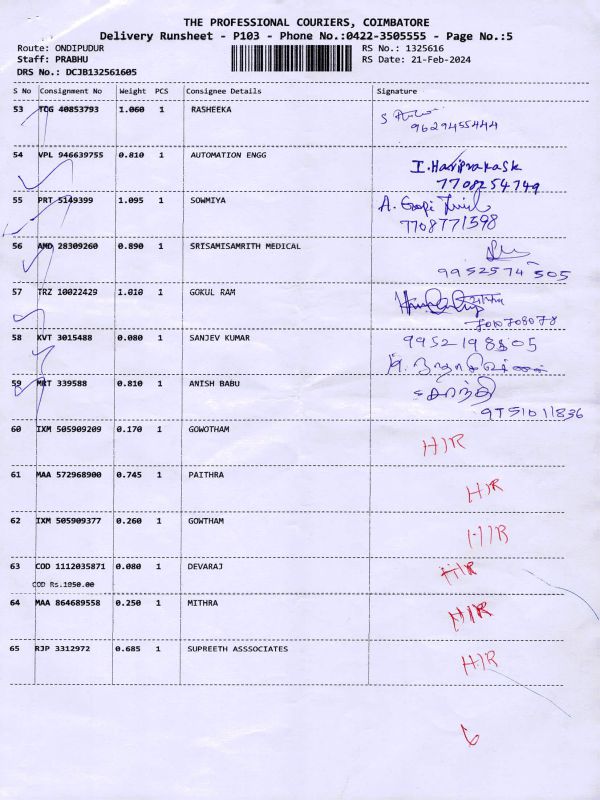 THE PROFESSIONAL COURIERS, COIMBATORE
Delivery Runsheet - P103 - Phone No.:0422-3505555 - Page No.:5
Route: ONDIPUDUR RS No.: 1325616
Staff: PRABHU RS Date: 21-Feb-2024
DRS No.: DCJB132561605
S No Consignment No Weight PCS Consignee Details Signature
53 TCG 40853793 1.060 1 RASHEEKA
9629455444
54 VPL 946639755 0.810 1 AUTOMATION ENGG I. Hariprakash
7708254749
55 PRT 5149399 1.095 1 SOWMIYA A. Gopi
7708771598
56 AMD 28309260 0.890 1 SRISAMISAMRITH MEDICAL
9952574505
57 TRZ 10022429 1.010 1 GOKUL RAM
7010708078
58 KVT 3015488 0.080 1 SANJEV KUMAR 9952198805
59 MRT 339588 0.810 1 ANISH BABU
9751011836
60 IXM 505909209 0.170 1 GOWOTHAM H/R
61 MAA 572968900 0.745 1 PAITHRA H/R
62 IXM 505909377 0.260 1 GOWTHAM H/R
63 COD 1112035871 0.080 1 DEVARAJ H/R
COD Rs.1050.00
64 MAA 864689558 0.250 1 MITHRA H/R
65 RJP 3312972 0.685 1 SUPREETH ASSSOCIATES H/R
6